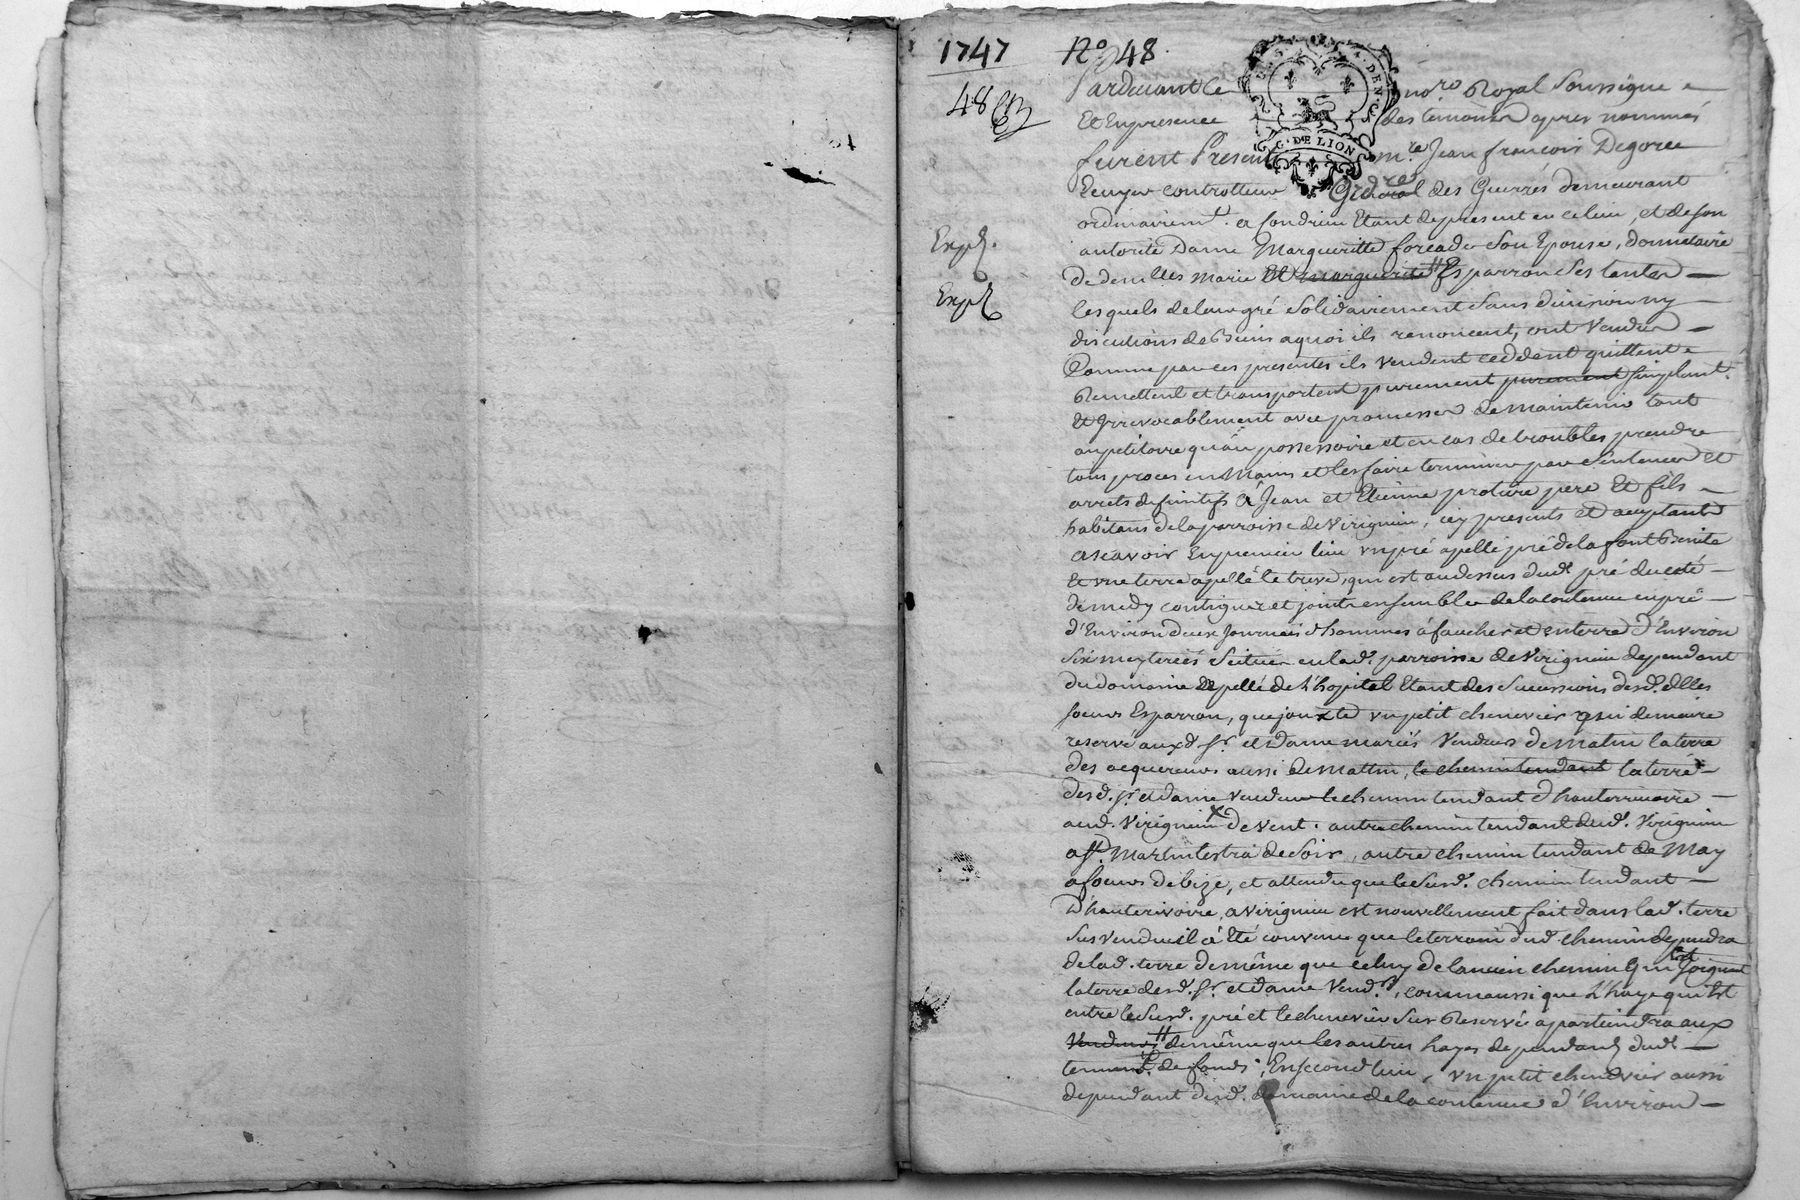 1747 No. 48.
48
Pardevant le nore Royal soussigné
Et En presence des temoins apres nommés
furent Presents mre. Jean françois Degorce
Ecuyer controlleur des Guerres demeurant
ordinairemt. a Etant de present en ce lieu, et de son
Expd.
autorité Dame Margueritte forcade son Epouse, donnataire
de demlles marie Et marguerite Esparron ses tantes
Expd.
lesquels de leur gré solidairement sans division ny
discutions de Biens a quoi ils renoncent, ont vendu
Comme par ces presentes ils vendent ceddent quittent
Remettent et transportent purement purement simplemt.
Et Irrevocablement avec promesse de maintenir tant
au petitoire qu'au possessoire et en cas de troubles prendre
tous proces en Mains et les faire terminer par sentences et
arrets definitifs a Jean et Etienne protiere pere Et fils
habitans de la parroisse de Virignieu, icy presents et acceptants
ascavoir En premier lieu un pré apellé pré de la font Benite
Et une terre apellé le treve, qui est au dessus dud. pré du coté
de midy contigues et joints ensemble de la contenue en pré
d'Environ deux Journées d'hommes à faucher et en terre d'Environ
six meyterées scitués en lad. parroisse de Virignieu dependant
du domaine apellé de L'hopital Etant des sucessions desd. dlles
soeurs Esparron, que jouxte un petit chenevier qui demeure
reservé auxd. sr. et Dame mariés Vendeurs de matin la terre
des acquereurs aussi de Mattin, le chemin tendant la terre
desd. sr. et dame vendeurs le chemin tendant d'hauterivoire
aud. Virignieu de vent. autre chemin tendant dud. Virignieu
a st. Martin lestra de soir, autre chemin tendant de May
a foeurs de bize, et attendu que le susd. chemin tendant
D'hauterivoire, a Virignieu est nouvellement fait dans lad. terre
sus vendue il a Eté convenu que le terrain dud. chemin dependra
de lad. terre de même que celuy de l'ancien chemin qui joignant
la terre desd. sr. et dame Vendrs, comm'aussi que L'haye qui Est
entre le susd. pré et le chenevier sus Reservé apartiendra aux
Vendeurs de même que les autres hayes dependants dud.
tennemt. de fonds, En second lieu, un petit chenevier aussi
dependant dud. domaine de la contenue d'Environ
G. DE LION